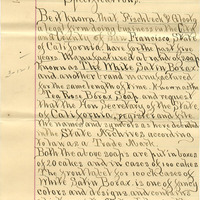 Specifications.
Be it Known that
a legal firm doing business in the City
& County of San Francisco, State
of California, have for the past five
years manufactured a brand of soap
known as The White Satin Borax
and another brand manufactured
for the same length of time. Known as the
Tea Rose Borax Soap and request
that the Hon. Secretary of the State
of California, register and file
the names and symbols as here
in the State Archives, according
to law as a Trade Mark.
Both the above soaps are put in boxes
of 20 cakes, and in cases of 100 cakes
The front label for 100 cakes of
White Satin Borax is one of fancy
colors and designs and contains